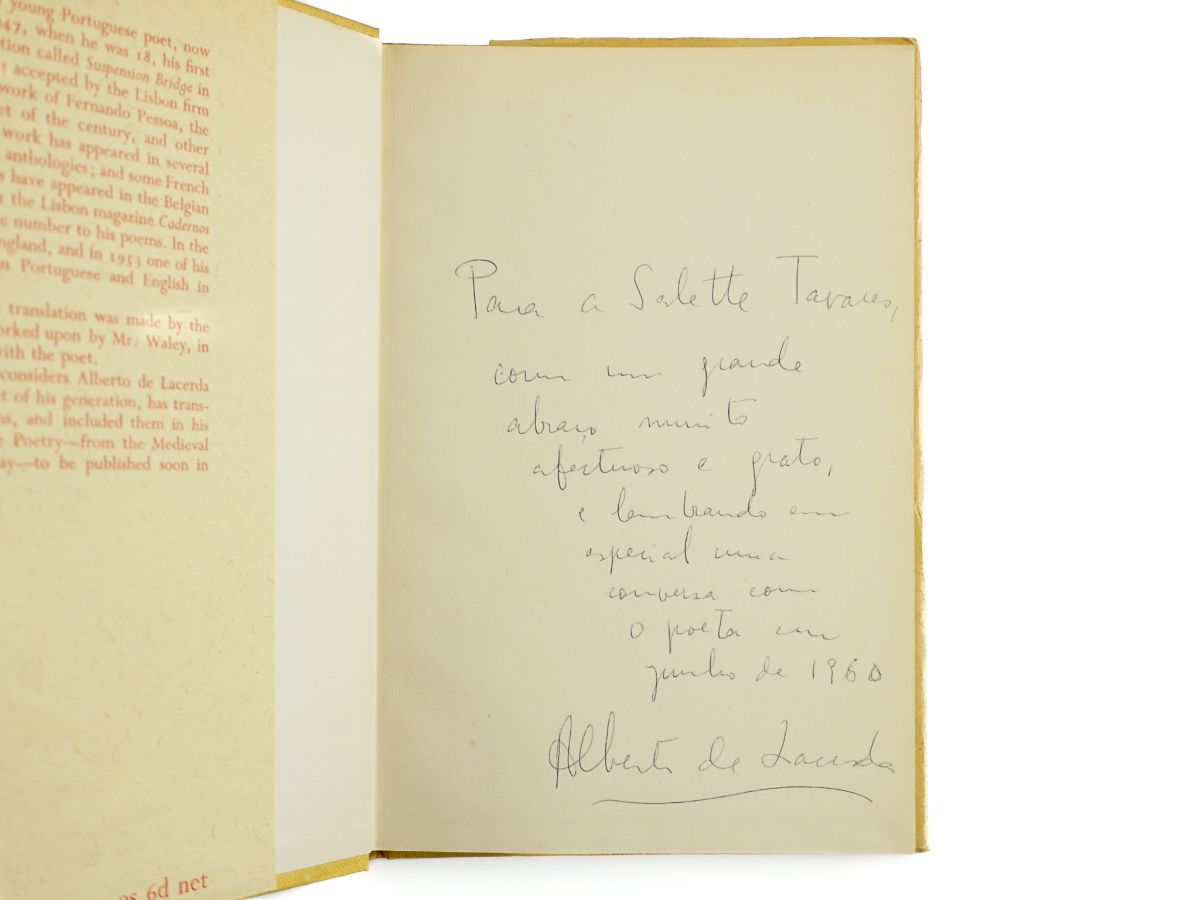 young Portuguese poet, now
947, when he was 18, his first
tion called Suspension Bridge in
s accepted by the Lisbon firm
work of Fernando Pessoa, the
et of the century, and other
work has appeared in several
anthologies; and some French
s have appeared in the Belgian
the Lisbon magazine Cadernos
e number to his poems. In the
ngland, and in 1953 one of his
n Portuguese and English in
translation was made by the
orked upon by Mr. Waley, in
with the poet.
considers Alberto de Lacerda
t of his generation, has trans-
ns, and included them in his
e Poetry—from the Medieval
ay—to be published soon in
os 6d net
Para a Salette Tavares,
com um grande
abraço muito
afectuoso e grato,
e lembrando em
especial uma
conversa com
o poeta em
junho de 1960
Alberto de Lacerda